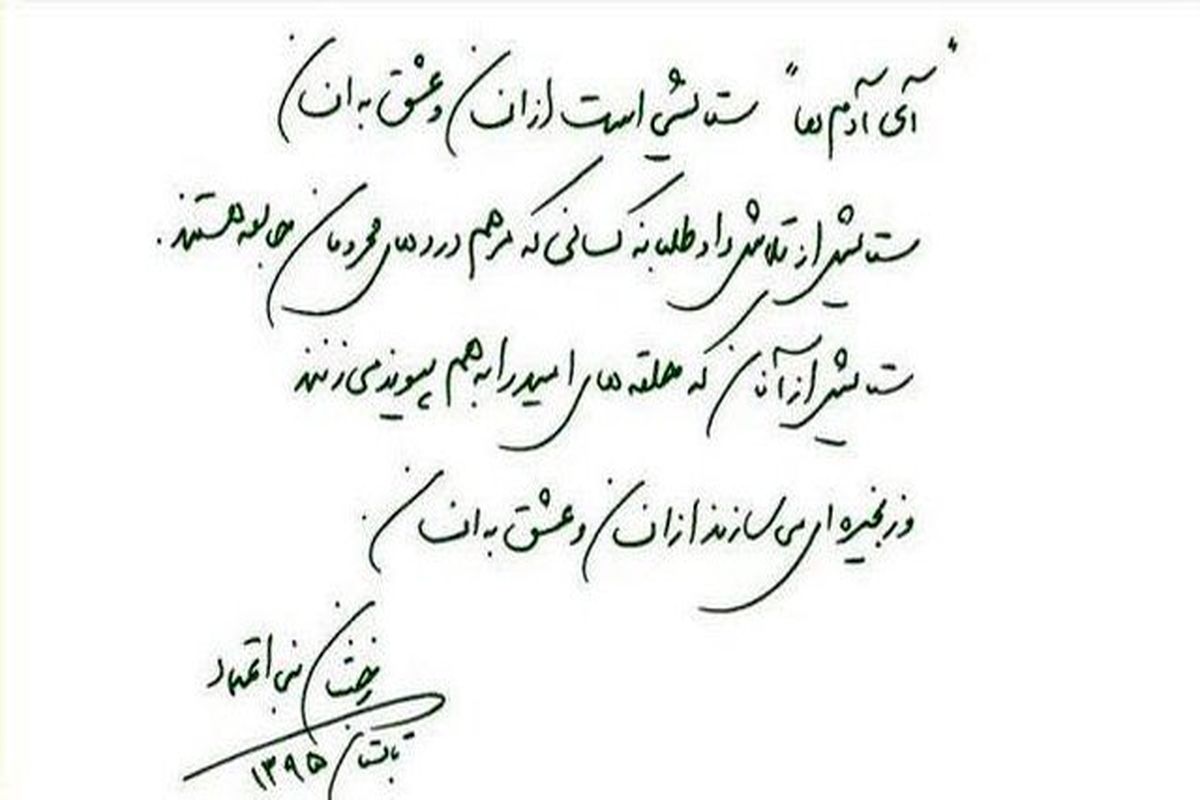 "آی آدم‌ها" ستایشی است از انسان و عشق به انسان
ستایش از تلاش داوطلبانه کسانی که مرهم دردهای محرومان جامعه هستند.
ستایش از آنان که حلقه‌های امید را به هم پیوند می‌زنند
و زنجیره‌ای می‌سازند از انسان و عشق به انسان.
رخشان بنی اعتماد
تابستان ۱۳۹۵